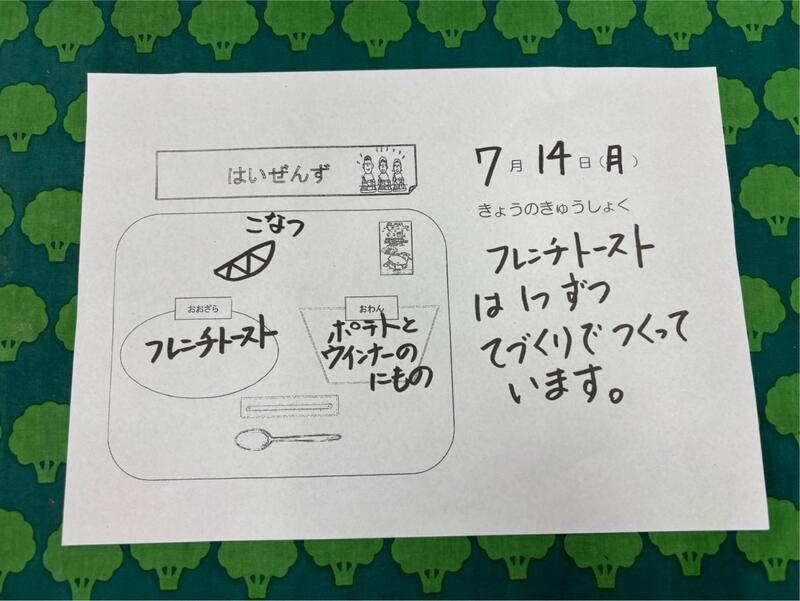 はいぜんず
こなつ
おおざら
フレンチトースト
おわん
ポテトと
ウインナーの
にもの
7月14日(月)
きょうのきゅうしょく
フレンチトースト
は1つずつ
てづくりでつくって
います。